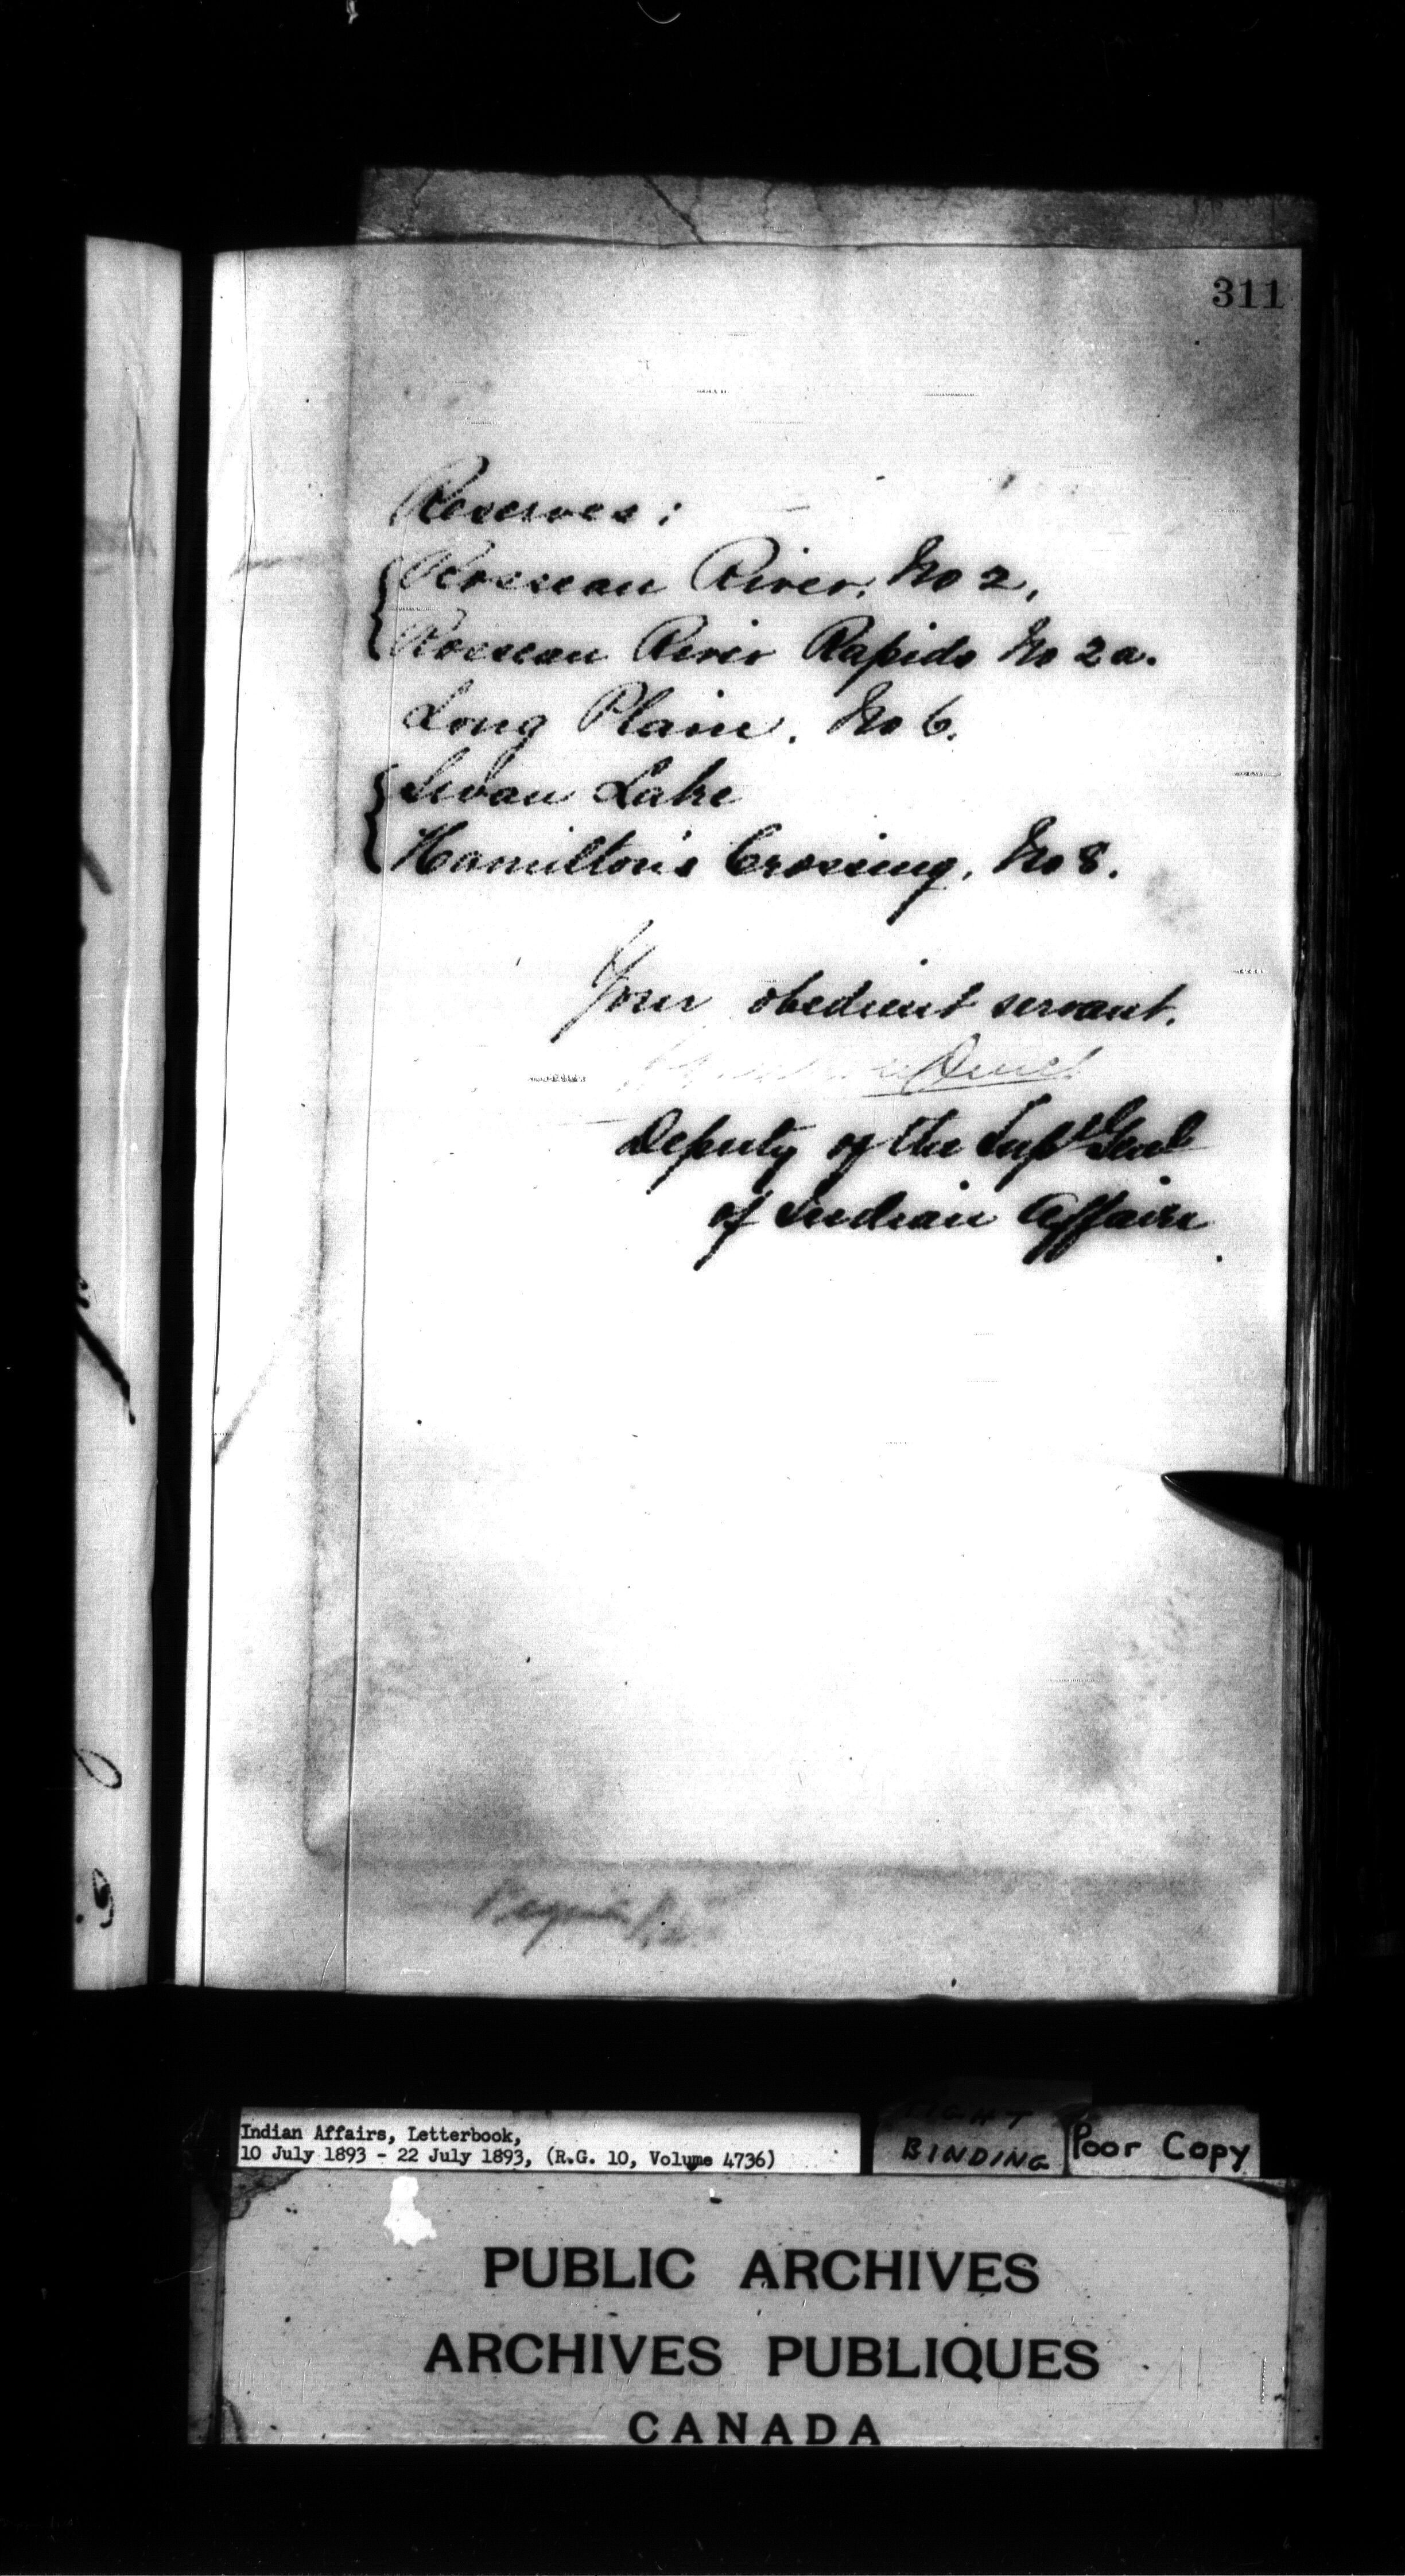 311
Reserves:
Roseau River, No 2,
Roseau River Rapids No 2a.
Long Plain. No 6.
Swan Lake
Hamilton's Crossing, No 8.
Your obedient servant.
Deputy of the Supt Genl
of Indian Affairs
Indian Affairs, Letterbook,
10 July 1893 - 22 July 1893, (R.G. 10, Volume 4736)
TIGHT
BINDING
Poor Copy
PUBLIC ARCHIVES
ARCHIVES PUBLIQUES
CANADA